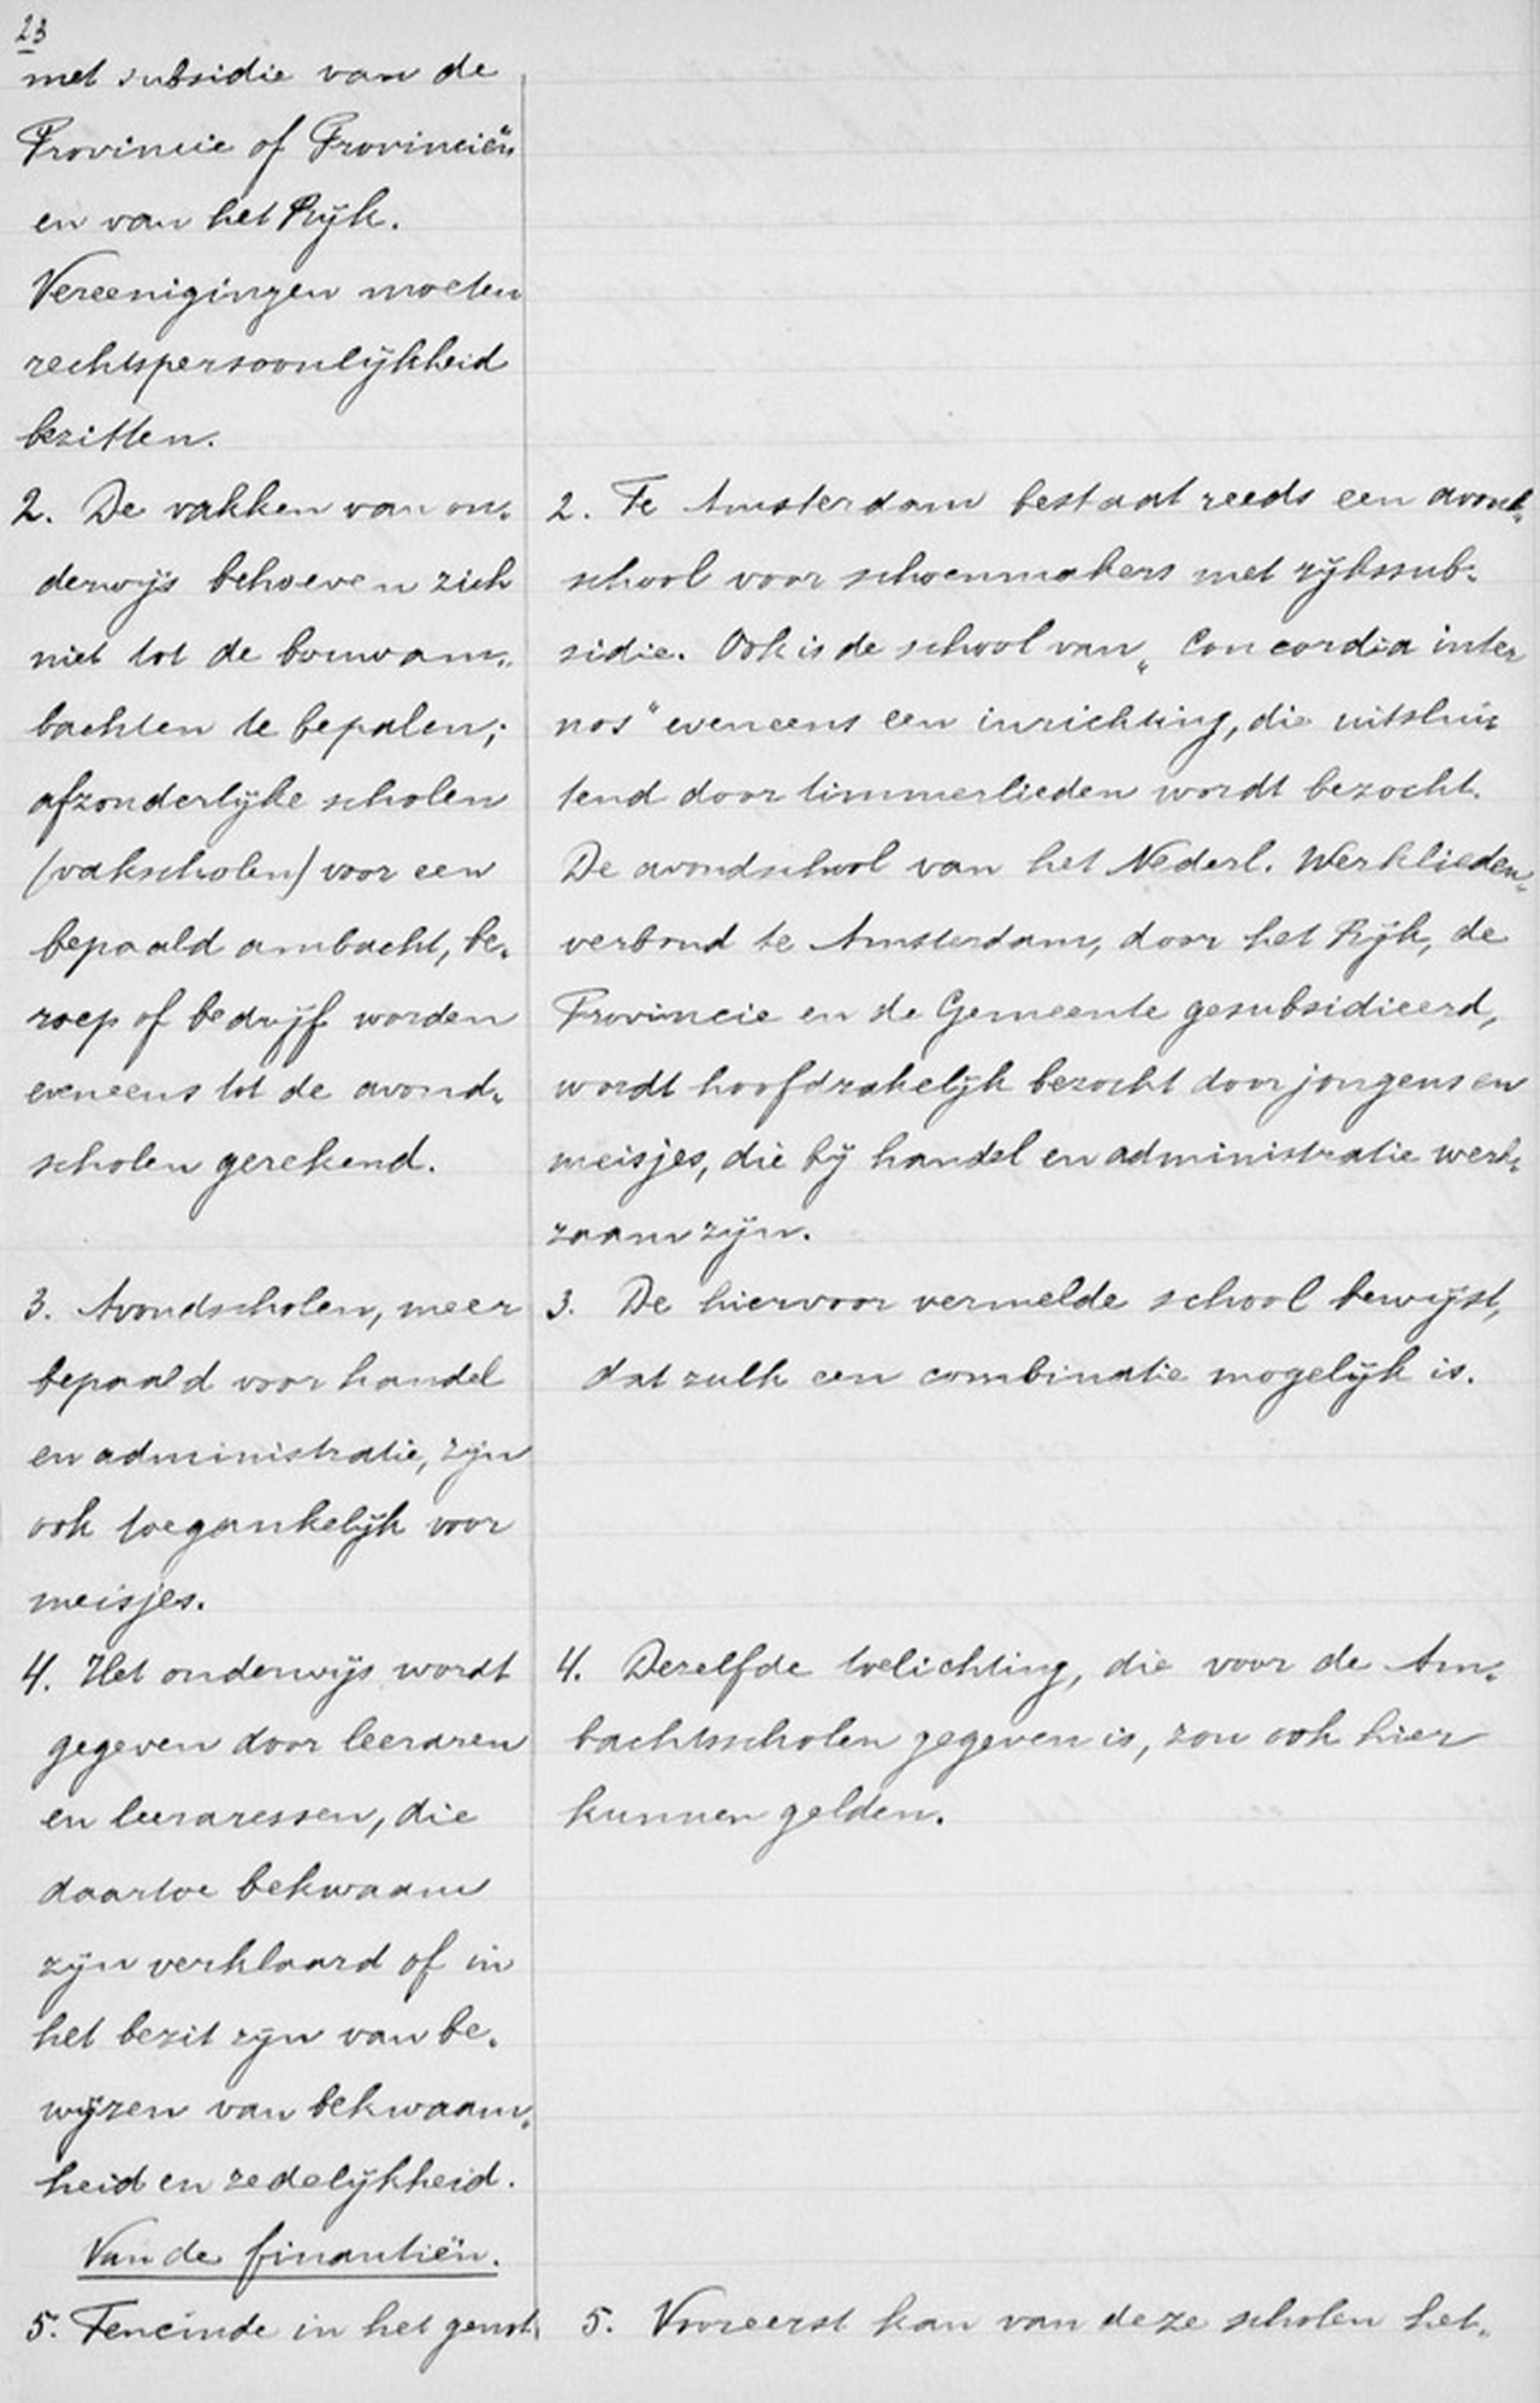 23
met subsidie van de
Provincie of Provinciën
en van het Rijk.
Vereenigingen moeten
rechtspersoonlijkheid
bezitten.
2. De vakken van on-
derwijs behoeven zich
niet tot de bouwam-
bachten te bepalen;
afzonderlijke scholen
(vakscholen) voor een
bepaald ambacht, be-
roep of bedrijf worden
eveneens tot de avond-
scholen gerekend.
3. Avondscholen, meer
bepaald voor handel
en administratie, zijn
ook toegankelijk voor
meisjes.
4. Het onderwijs wordt
gegeven door leeraren
en leeraressen, die
daartoe bekwaam
zijn verklaard of in
het bezit zijn van be-
wijzen van bekwaam-
heid en zedelijkheid.
Van de finantiën.
5. Teneinde in het genot
2. Te Amsterdam bestaat reeds een avond-
school voor schoenmakers met rijkssub-
sidie. Ook is de school van „Concordia inter
nos" eveneens een inrichting, die uitslui-
tend door timmerlieden wordt bezocht.
De avondschool van het Nederl. Werklieden-
verbond te Amsterdam, door het Rijk, de
Provincie en de Gemeente gesubsidieerd,
wordt hoofdzakelijk bezocht door jongens en
meisjes, die bij handel en administratie werk-
zaam zijn.
3. De hiervoor vermelde school bewijst,
dat zulk een combinatie mogelijk is.
4. Dezelfde toelichting, die voor de Am-
bachtsscholen gegeven is, zou ook hier
kunnen gelden.
5. Vooreerst kan van deze scholen het-